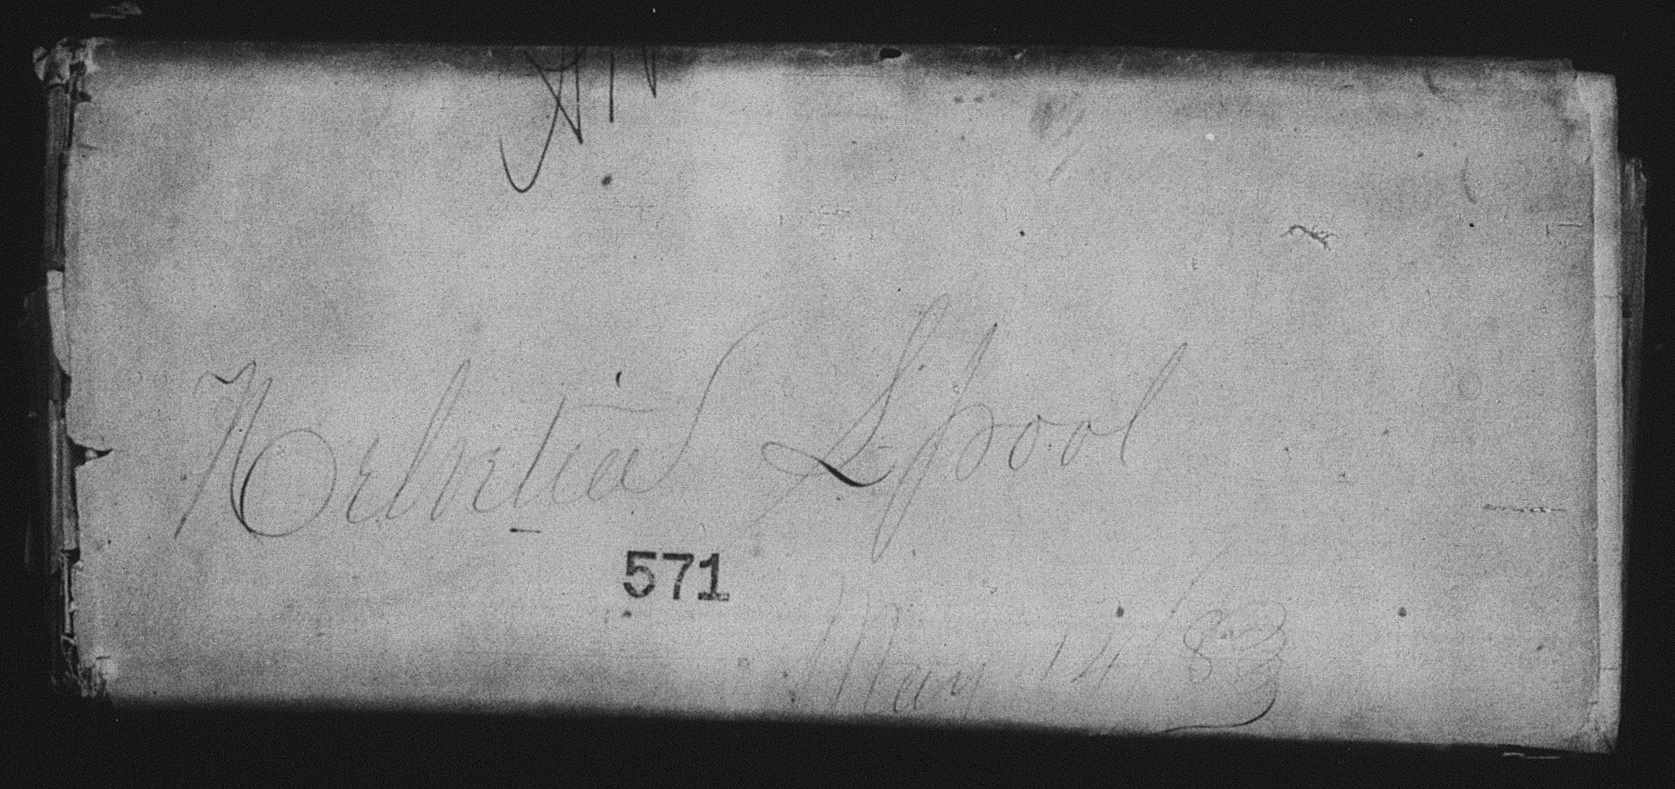 Helvetia L'pool
571
May 14/83